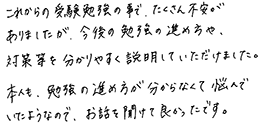 これからの受験勉強の事で、たくさん不安が
ありましたが、今後の勉強の進め方や、
対策等を分かりやすく説明していただけました。
本人も、勉強の進め方が分からなくて悩んで
いたようなので、お話を聞けて良かったです。